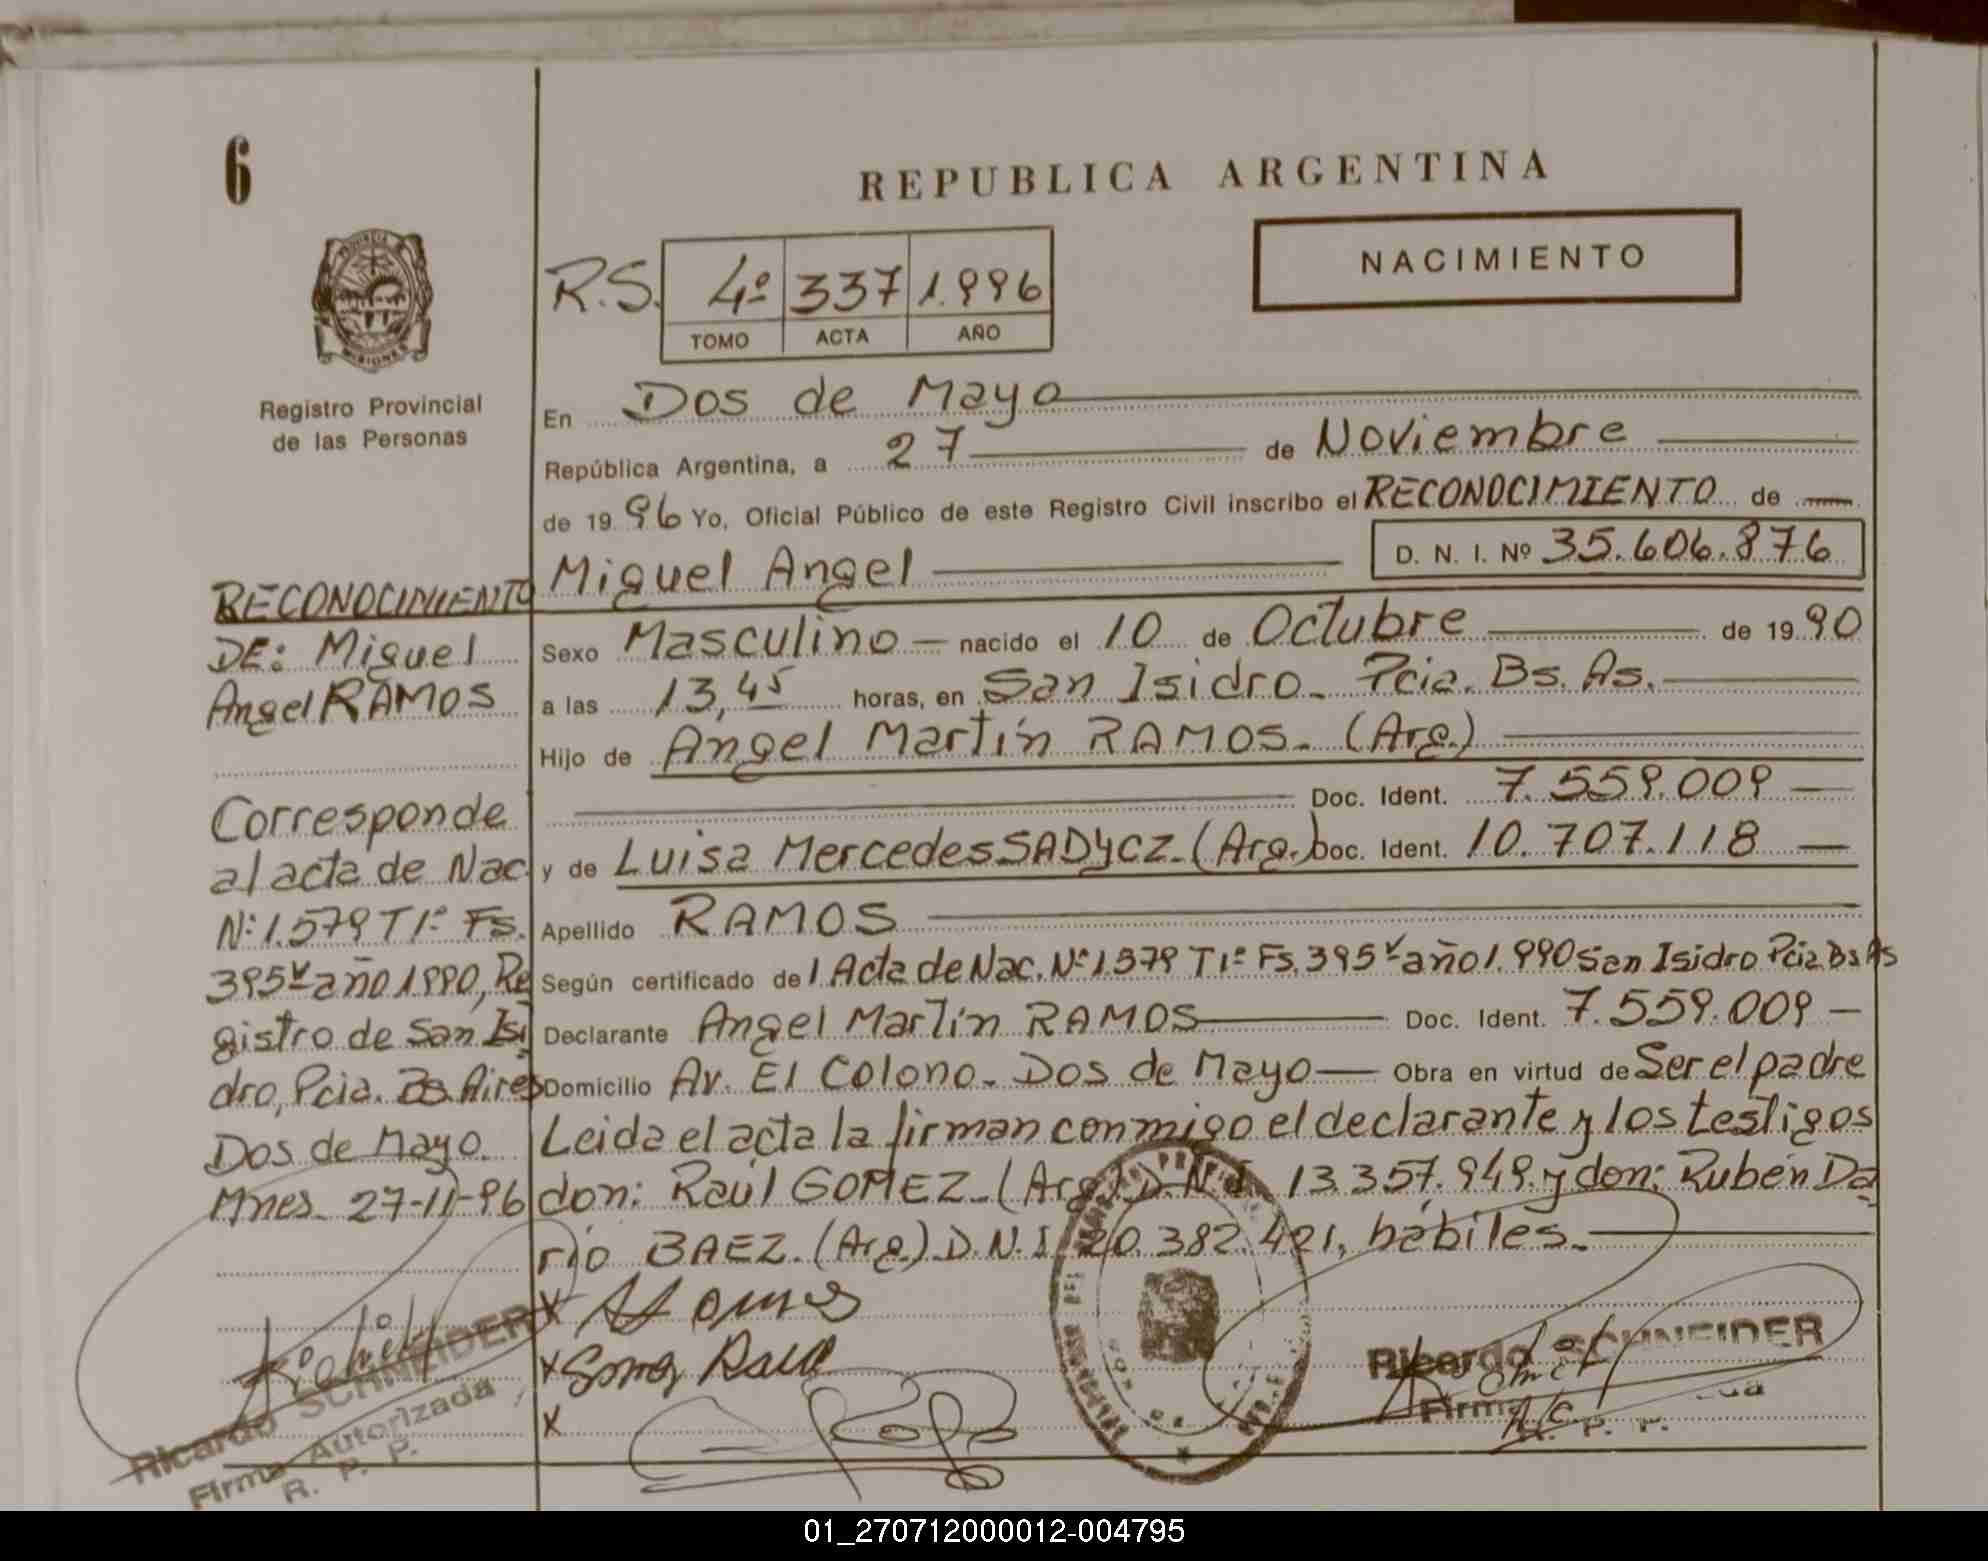 6
REPUBLICA ARGENTINA
NACIMIENTO
PROVINCIA
MISIONES
Registro Provincial
de las Personas
R.S. 4º 337 1.996
TOMO ACTA AÑO
En Dos de Mayo
República Argentina, a 27 de Noviembre
de 19 96 Yo, Oficial Público de este Registro Civil inscribo el RECONOCIMIENTO de
Miguel Angel D. N. I. Nº 35.606.876
Sexo Masculino nacido el 10 de Octubre de 19 90
a las 13,45 horas, en San Isidro- Pcia. Bs. As.
Hijo de Angel Martín RAMOS- (Arg.)
Doc. Ident. 7.559.009
y de Luisa Mercedes SADYCZ-(Arg.) Doc. Ident. 10.707.118
Apellido RAMOS
Según certificado de 1 Acta de Nac. Nº 1.579 T1º Fs. 395v año 1.990 San Isidro Pcia Bs As
Declarante Angel Martín RAMOS Doc. Ident. 7.559.009
Domicilio Av. El Colono- Dos de Mayo Obra en virtud de Ser el padre
Leida el acta la firman conmigo el declarante y los testigos
don: Raúl GOMEZ-(Arg.) D.N.I. 13.357.949. y don: Rubén Da
río BAEZ.(Arg.) D.N.I. 20.382.421, hábiles.
X
X Gomez Raul
X
RECONOCIMIENTO
DE: Miguel
Angel RAMOS
Corresponde
al acta de Nac.
Nº 1.579 T1º Fs.
395v año 1990, Re
gistro de San Isi
dro, Pcia. Bs. Aires
Dos de Mayo.
Mnes- 27-11-96
Ricardo SCHNEIDER
Firma Autorizada
R. P. P.
Ricardo SCHNEIDER
Firma
R. P. P.
01_270712000012-004795